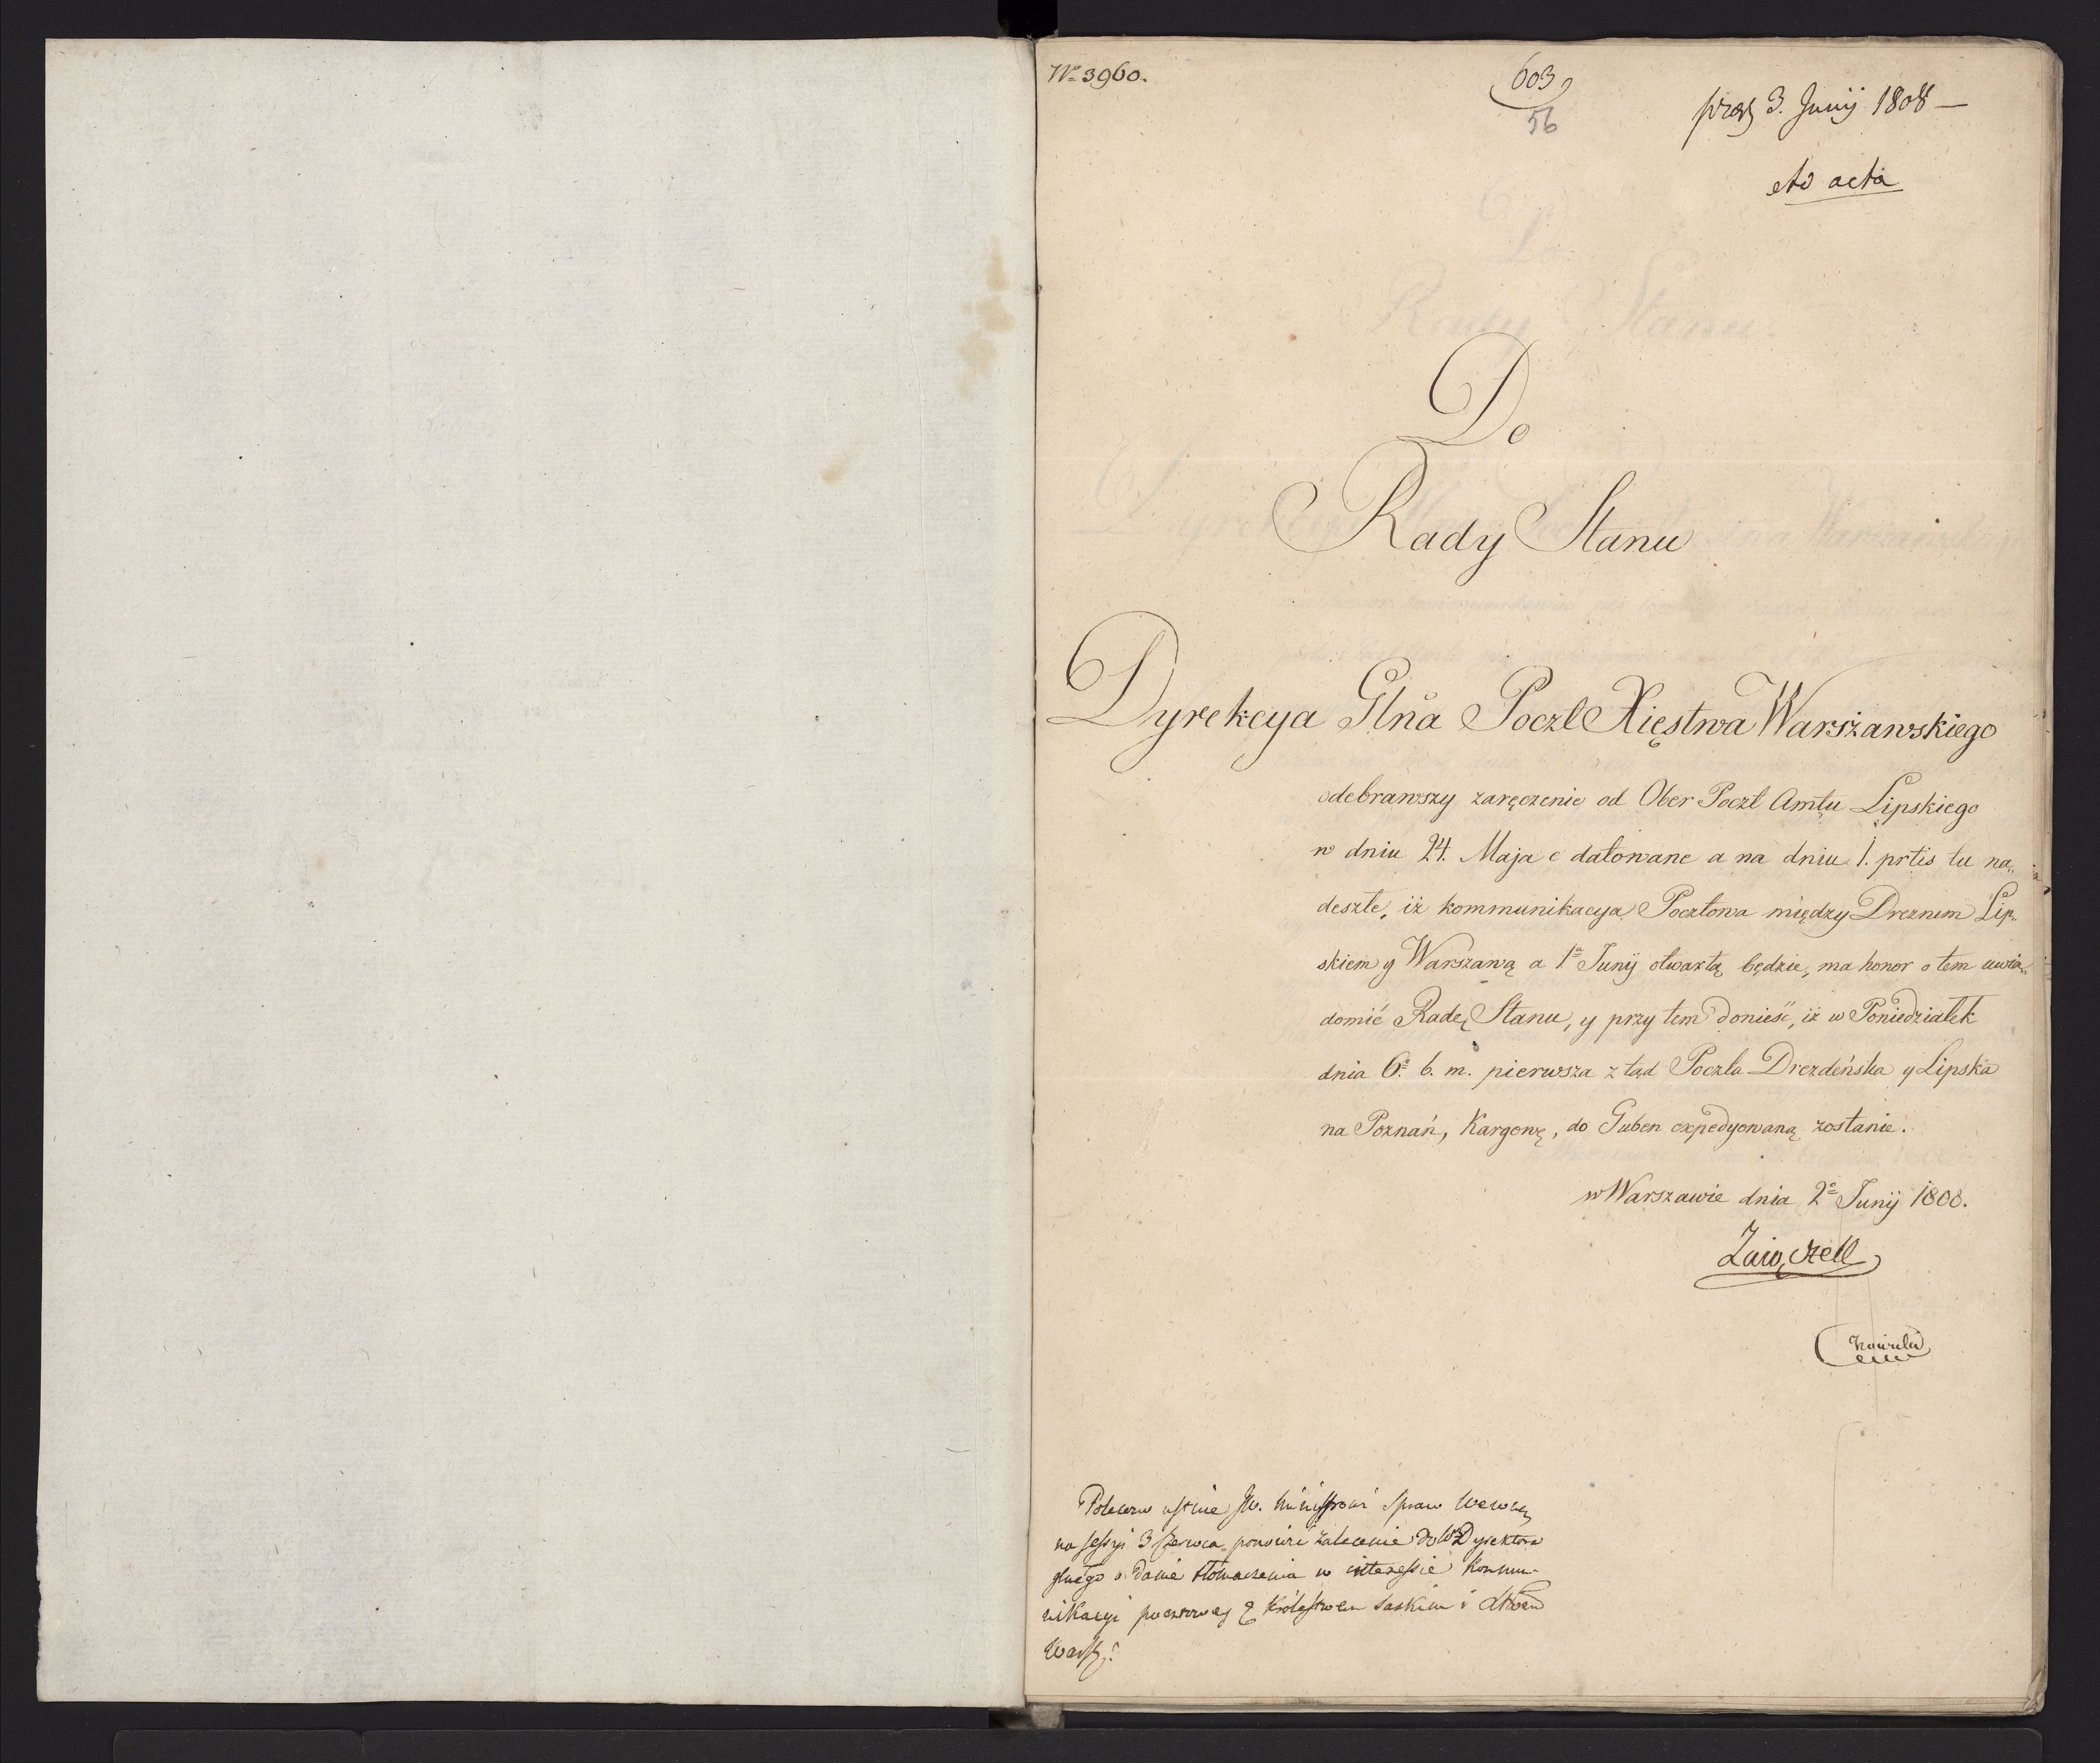 No 3960.
603
56
prez 3. Junij 1808 —
ad acta
Do
Rady Stanu
Dyrekcya Glna Poczt Xięstwa Warszawskiego
odebrawszy zaręczenie od Ober Poczt Amtu Lipskiego
w dniu 24. Maja c datowane a na dniu 1. prtis tu na„
deszłe, iż kommunikacya Pocztowa między Dreznem Lip„
skiem y Warszawą a 1a Junij otwartą będzie, ma honor o tem uwia„
domić Radę Stanu, y przy tem donieść, iż w Poniedziałek
dnia 6o b. m. pierwsza z tąd Poczta Drezdeńska y Lipska
na Poznań, Kargowę, do Guben expedyowaną zostanie.
w Warszawie dnia 2o Junij 1808.
Zaiączek
Polecono ustnie JW. Ministrowi Spraw Wewnę
na sessyi 3 Czerwca ponowić zalecenie do Dyrektora
glnego o danie tłómaczenia w interessie kommu-
nikacyi pocztowey z Królestwem Saskim i
Warsz: